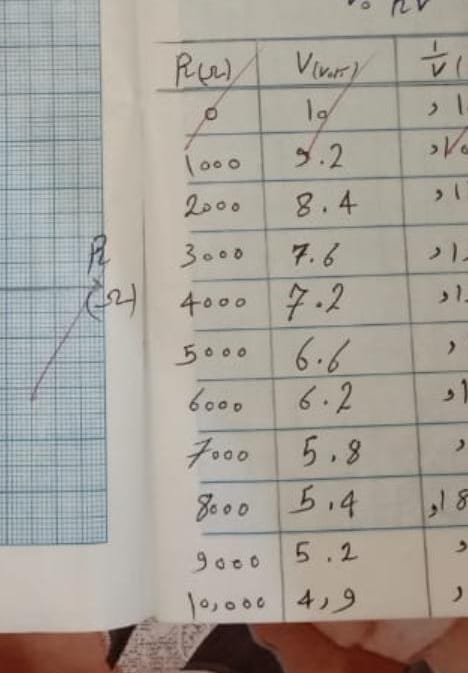 R(Ω) V(volt) 1/V (
0 10 ,1
1000 9.2 ,10
2000 8.4 ,1
3000 7.6 ,1
4000 7.2 ,1
5000 6.6 ,
6000 6.2 ,1
7000 5.8 ,
8000 5.4 ,18
9000 5.2 ,
10,000 4,9 ,
R
(Ω)